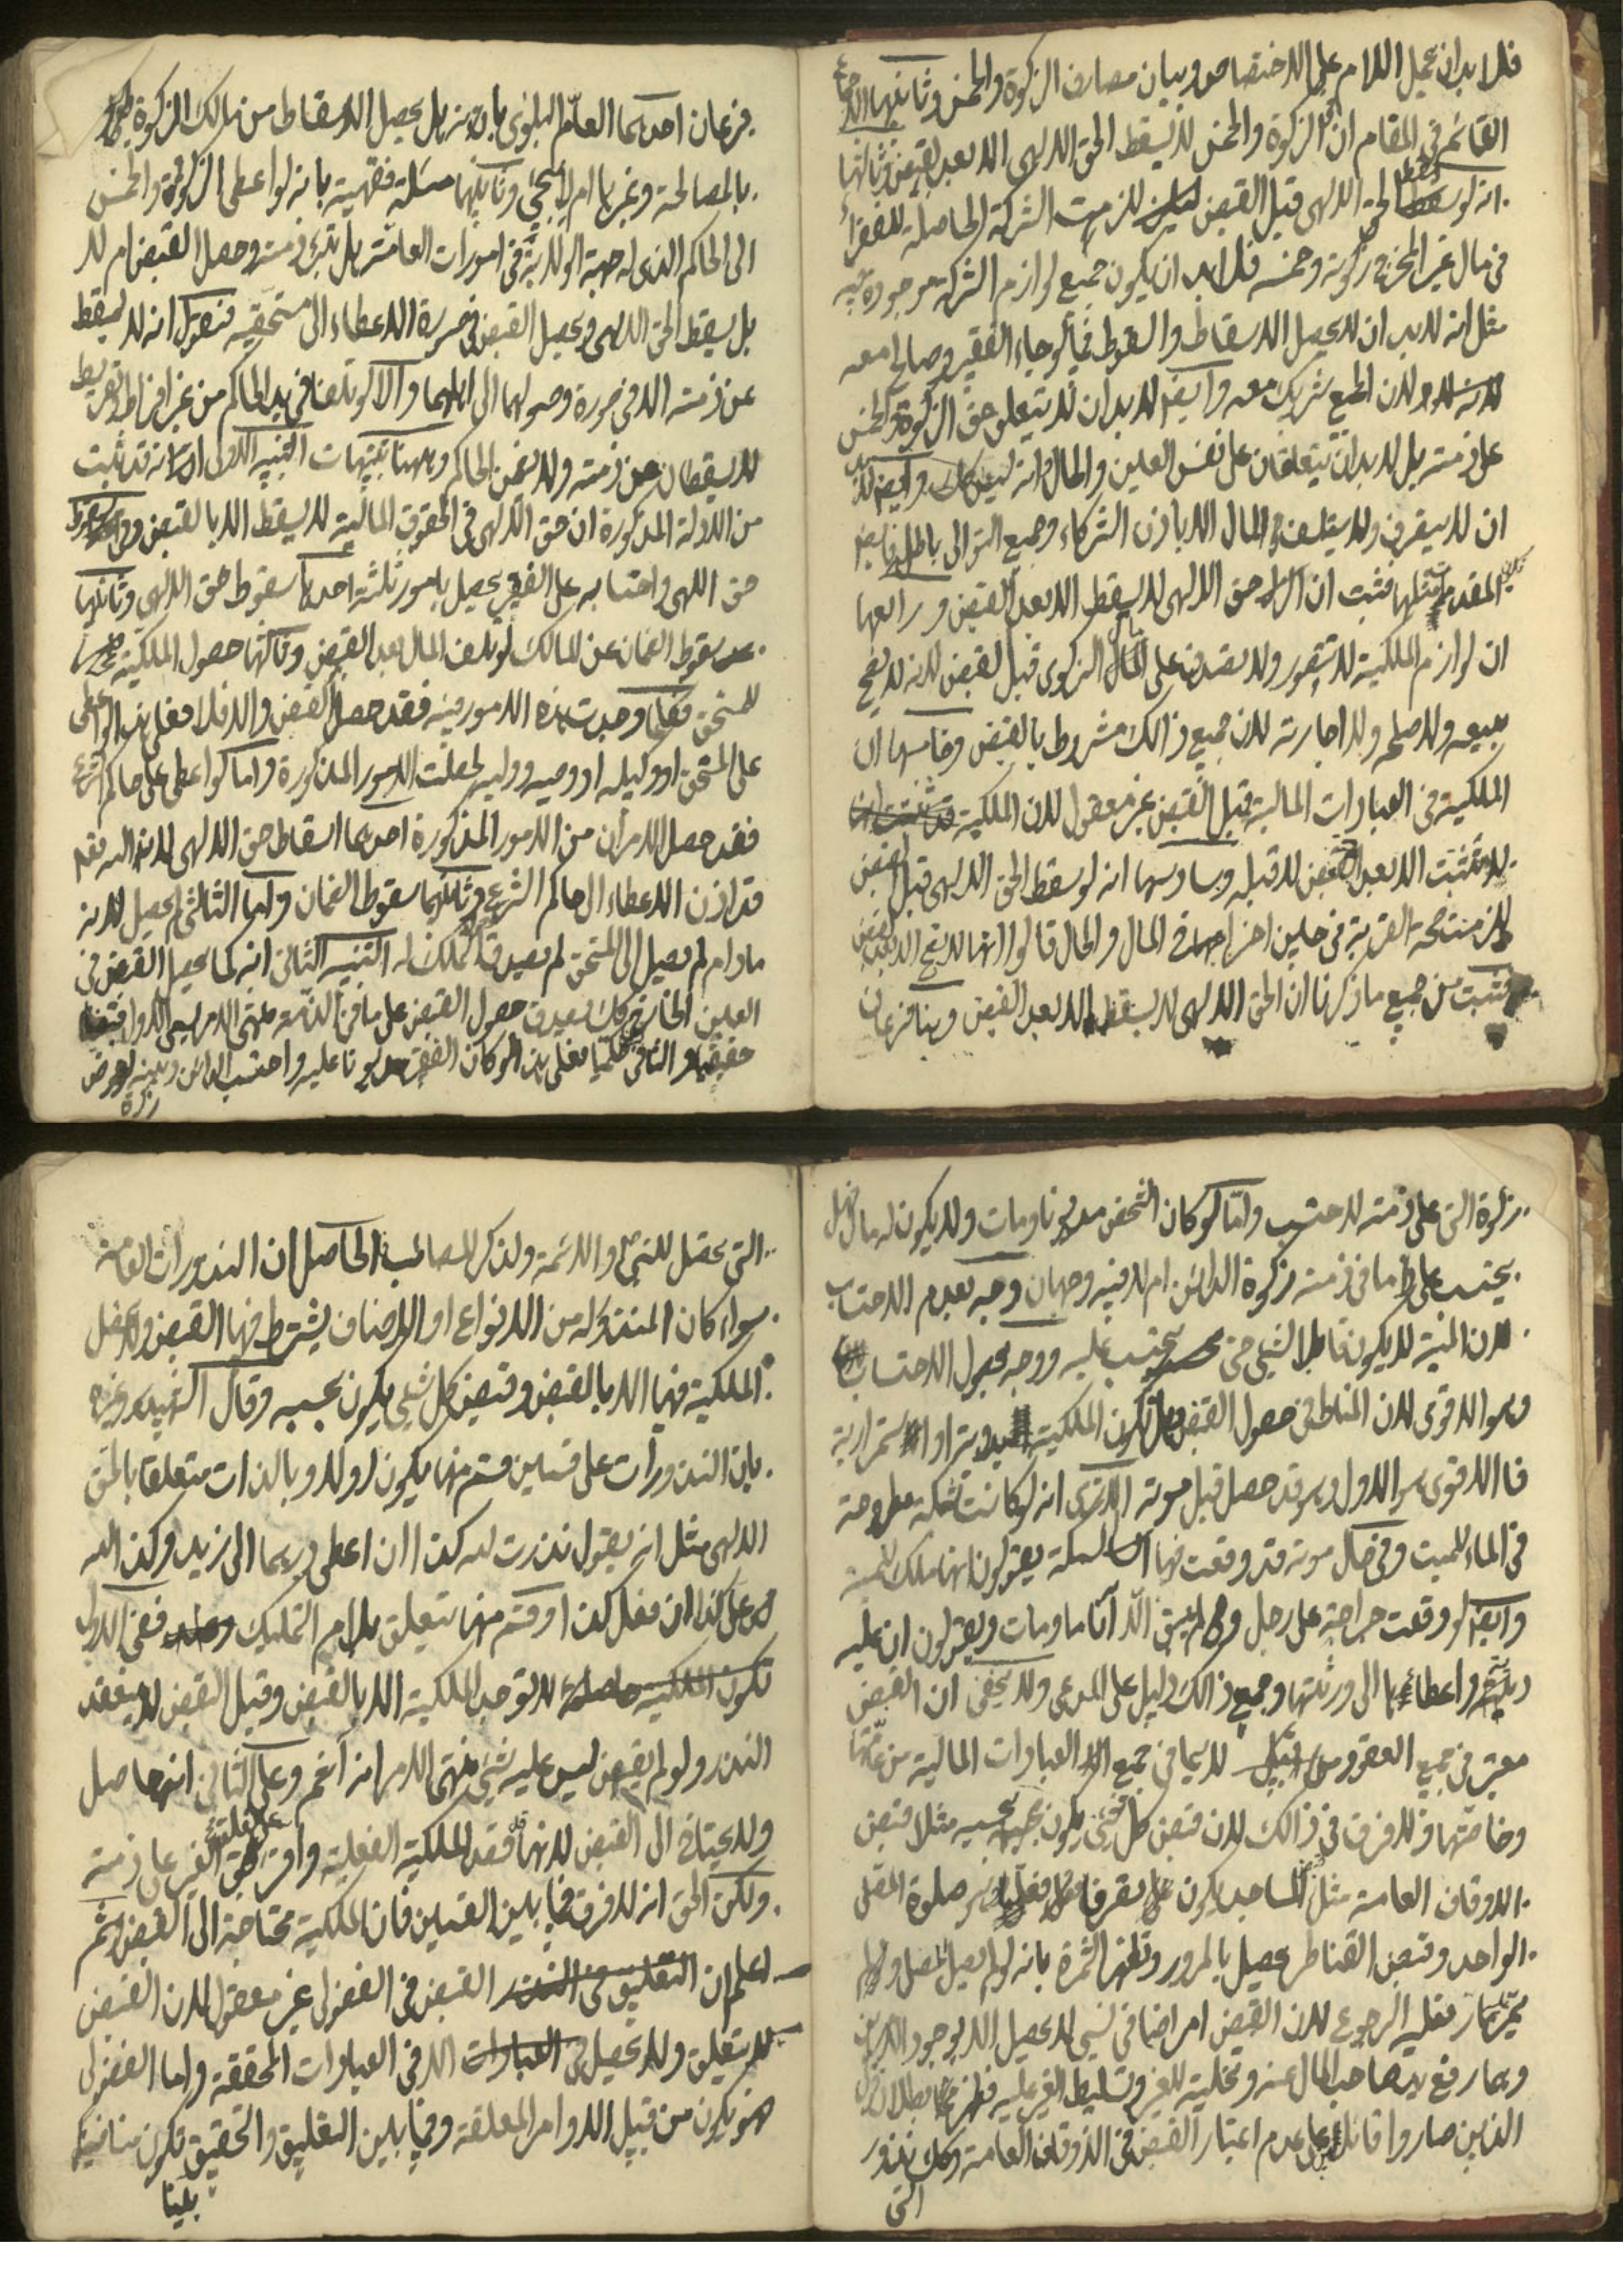 فلا بد ان يحمل اللام على الاختصاص وبيان مصارف الزكوة والخمس وثانيها الاجماع
القائم في المقام ان الزكوة والخمس لا يسقط الحق الالهى الا بعد القبض وثالثها
انه لو سقط الحق الالهى قبل القبض للزمت الشركة الحاصلة للفقراء
في مال غير المخرج زكوته وخمسه فلا بد ان يكون جميع لوازم الشركة موجودة فيه
مثل انه لا بد ان لا يحصل الاسقاط والسقوط فيما لو جاء الفقير وصالحا معه
لان الجميع شريك معه وايضا لا بد ان لا يتعلق حق الزكوة والخمس
على ذمته بل لا بد ان يتعلقان على نفس العين والحال انه ليس كك وايضا لا بد
ان لا يتصرف ولا يتلف في المال الا باذن الشركاء وجميع التوالى باطل
المقدم مثلها فثبت ان حق الالهى لا يسقط الا بعد القبض ورابعها
ان لوازم الملكية لا يتصور ولا يصدق على المال الزكوى قبل القبض لانه لا يصح
بيعه ولا صلحه ولا اجارته لان جميع ذالك مشروط بالقبض وخامسها ان
الملكية في العبادات المالية قبل القبض غير معقول لان الملكية
لا تثبت الا بعد القبض لا قبله وسادسها انه لو سقط الحق الالهى قبل القبض
للزمت صحة القربة في حين اخراجها في المال والحال قالوا انها لا يصح الا بعد القبض
فثبت من جميع ما ذكرنا ان الحق الالهى لا يسقط الا بعد القبض وهنا فرعان
فرعان احدهما العام البلوى بانه هل يحصل الاسقاط من مالك الزكوة
بالمصالحة وغيرها ام لا وثانيها مسئلة فقهية بانه لو اعطى الزكوة والخمس
الى الحاكم الذى له جهة الولاية في امورات العامة هل تبرء ذمته وحصل القبض ام لا
بل يسقط الحق الالهى ويحصل القبض في صورة الاعطاء الى مستحقيه فنقول انه لا يسقط
عن ذمته الا في صورة وصولهما الى اهلهما والا لو تلفا في يد الحاكم من غير افراط وتفريط
لا يسقطان عن ذمته ولا يضمن الحاكم وههنا تنبيهات التنبيه الاول انه قد ثبت
من الادلة المذكورة ان حق الالهى في الحقوق المالية لا يسقط الا بالقبض وفى سقوط
حق اللهى واحتسابه على الفقير يحصل بامور ثلثة احدها سقوط حق الالهى وثانيها
سقوط الضمان عن المالك لو تلف المال بعد القبض وثالثها حصول الملكية
للمستحق فكلما وجدت هذه الامور فيه فقد حصل القبض والا فلا فعلى هذا لو اعطى
على المستحق او وكيله او وصيه ووليه لحصلت الامور المذكورة واما لو اعطى على حاكم الشرع
فقد حصل الامران من الامور المذكورة احدهما اسقاط حق الالهى لان الله تعه
قد اذن الاعطاء الى حاكم الشرع وثانيهما سقوط الضمان واما الثالث لم يحصل لانه
مادام لم يصل الى المستحق لم يصدق تملك له التنبيه الثانى انه كما يحصل القبض في
العين الخارجى كك يصدق حصول القبض على ما في الذمة منتهى الامر يسمى الاول قبضا
حقيقيا والثانى حكميا فعلى هذا لو كان الفقير مديونا عليه واحتسب الدائن دينه بعوض
زكوة
زكوة التى على ذمته لا حتسب واما لو كان الشخص مديونا ومات ولا يكون له مال فهل
يحتسب على ما في ذمته زكوة الدائن ام لا فيه وجهان وجه بعدم الاحتساب
لان الميت لا يكون قابلا لشئ حتى يحتسب عليه ووجه بحصول الاحتساب
وهو الاقوى لان المناط في حصول القبض هل تكون الملكية او استمرارية
فالاقوى هو الاول وهو قد حصل قبل موته الا ترى انه لو كانت شبكة مطروحة
في الماء للميت وفى حال موته قد وقعت فيها السمكة يقولون انها ملك للميت
وايضا لو وقعت جراحة على رجل ولم يبق الا آنا ما ومات ويقولون ان عليه
ديته واعطائها الى ورثتها وجميع ذالك دليل على المدعى ولا يخفى ان القبض
معتبر في جميع العقود لا سيما في جميع العبادات المالية من عامتها
وخاصتها ولا فرق في ذالك لان قبض كل شئ يكون بحسبه مثلا قبض
الاوقاف العامة مثل المساجد يكون هو صلوة المصلى
الواحد وقبض القناطر يحصل بالمرور وتظهر الثمرة بانه لو لم يصل المصلى ولم
يمر المار فعليه الرجوع لان القبض امر اضافى نسبى لا يحصل الا بوجود الامرين
وبهما رفع يد صاحب المال عنه وتخليته للغير وتسليط الغير عليه فظهر بطلان قول
الذين صاروا قائلا على عدم اعتبار القبض في الاوقاف العامة وكك نذور
التى
التى يحصل للنبى والائمة ولذكر المصائب الحاصل ان النذورات العامة
سواء كان المنذور له من الانواع او الاصناف يشترط فيها القبض ولا يحصل
الملكية فيها الا بالقبض وقبض كل شئ يكون بحسبه وقال الشهيد وغيره
بان النذورات على قسمين قسم منها يكون اولا وبالذات متعلقا بالحق
الالهى مثل انه يقول نذرت لله كذا ان اعطى درهما الى زيد وكذا لله
على كذا ان فعل كذا وقسم منها يتعلق بلام التمليك ففى الاول
لا توجد الملكية الا بالقبض وقبل القبض لا ينعقد
النذر ولو لم يقبض ليس عليه شئ منتهى الامر انه آثم وعلى الثانى انها حاصل
ولا يحتاج الى القبض لانها تفقد الملكية الفعلية وافراق حق الغير على ذمته
ولكن الحق انه لا فرق فيما بين القسمين فان الملكية محتاجة الى القبض ثم
اعلم ان القبض في الفضولى غير معقول لان القبض
لا يتعلق ولا تحصيل الا في العبادات المحققة واما الفضولى
هو يكون من قبيل الاوامر المعلقة وفيما بين التعليق والتحقيق تكون منافيا
بينا